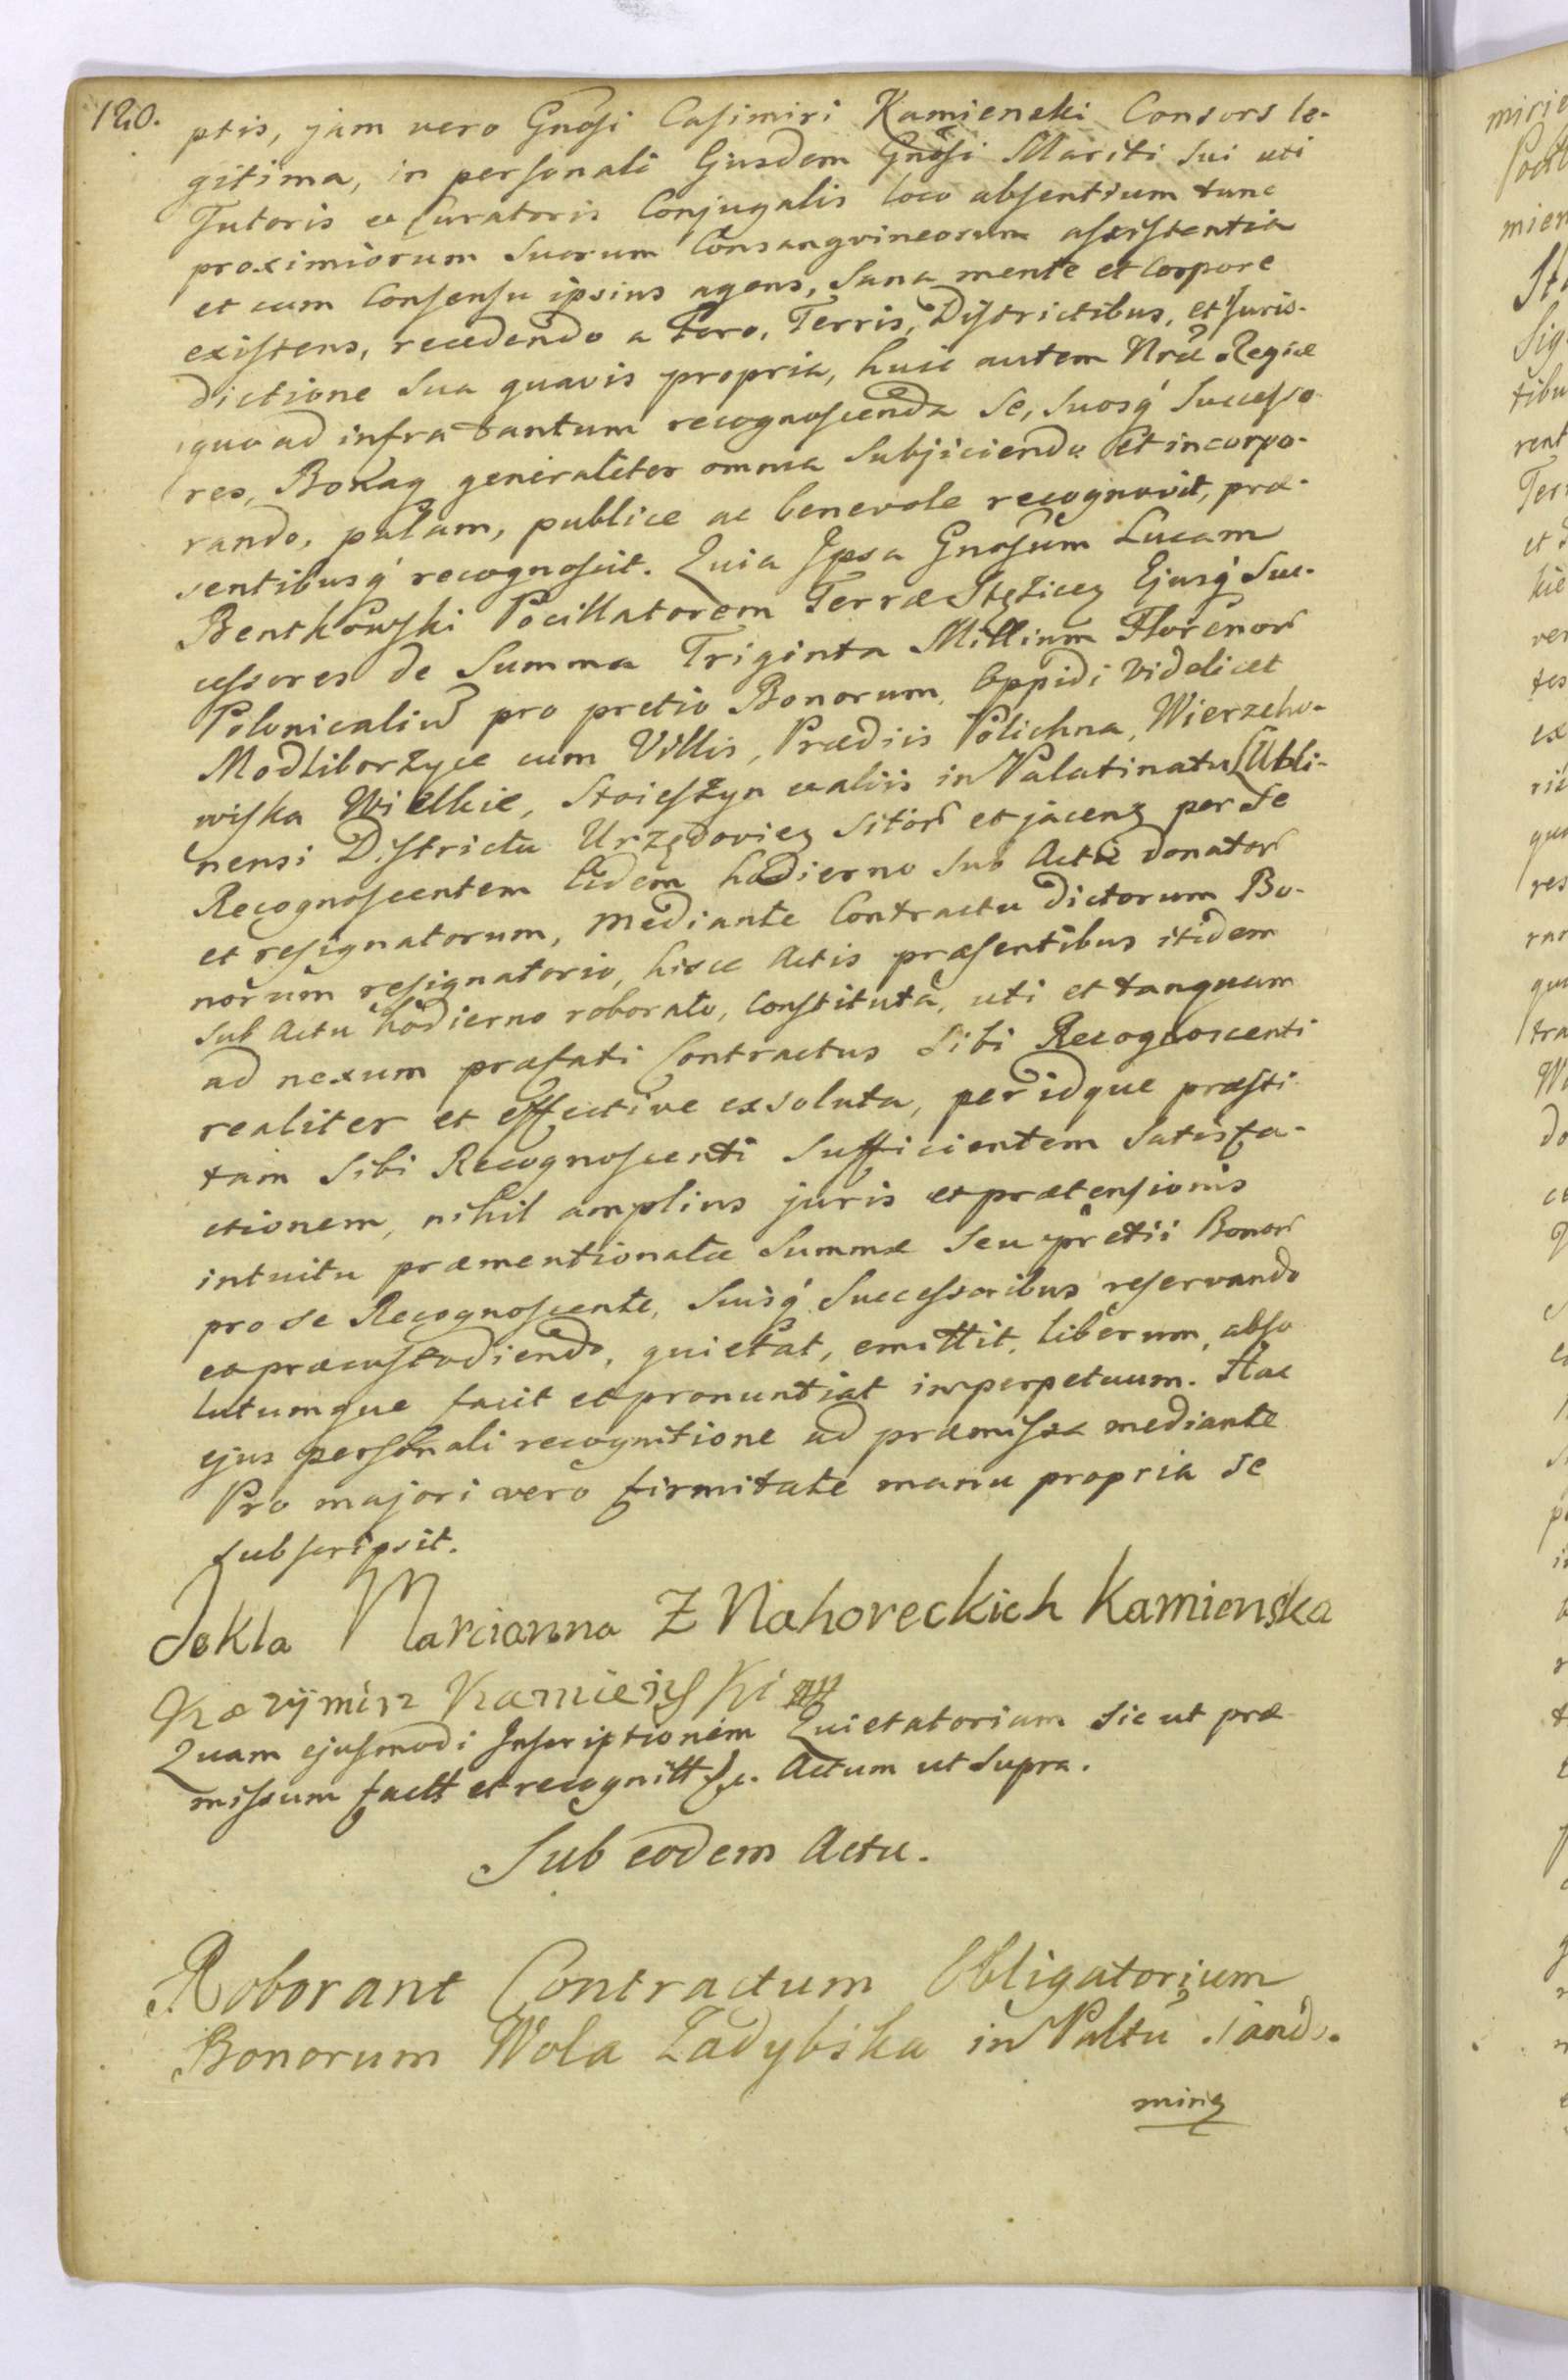 120.
ptis, jam vero Gnosi Casimiri Kamienski Consors le-
gitima, in personali Ejusdem Gnosi Mariti sui uti
Tutoris et Curatoris Conjugalis loco absentium tunc
proximiorum suorum Consangvineorum assistentia
et cum Consensu ipsius agens, Sana mente et Corpore
existens, recedendo a Foro, Terris, Districtibus, et Juris-
dictione sua quavis propria, huic autem Nrae Regiae
quo ad infra tantum recognoscenda Se, suosq́ Successo
res, Bonaq generaliter omnia Subjiciendo et incorpo-
rando, palam, publice ac benevole recognovit, prae-
sentibusq́ recognoscit. Quia Ipsa Gnosum Lucam
Bentkowski Pocillatorem Terrae Stężicen Ejusq́ Suc-
cessores de Summa Triginta Millium Florenor
Polonicaliu pro pretio Bonorum, Oppidi videlicet
Modliborżyce cum Villis, Praediis Polichna, Wierzcho-
wiska Wielkie, Stoieszyn et aliis in Palatinatu Lubli-
nensi Districtu Urzędovien sitor et jacen per Se
Recognoscentem Eidem hodierno sub Actu donator
et resignatorum, mediante Contractu dictorum Bo-
norum resignatorio, hisce Actis praesentibus itidem
sub Actu hodierno roborato, constituta, uti et tanquam
ad nexum praefati Contractus sibi Recognoscenti
realiter et effective exsoluta, per idque praesti
tam Sibi Recognoscenti Sufficientem Satisfa-
ctionem, nihil amplius juris et praetensionis
intuitu praementionatae Summae seu pretii Bonor
pro se Recognoscente, Suisq́ Successoribus reservando
et praecustodiendo, quietat, emittit, liberum, abso
lutumque facit et pronuntiat in perpetuum. Hac
ejus personali recognitione ad praemissa mediante
Pro majori vero firmitate manu propria se
subscripsit.
Tekla Marcianna Z Nahoreckich Kamienska
Kazÿmirz Kamieński
Quam ejusmodi Inscriptionem Quietatoriam sic ut prae
missum factt et recognitt &c. Actum ut Supra.
Sub eodem Actu.
Roborant Contractum Obligatorium
Bonorum Wola Zadybska in Paltu Sando-
mirien